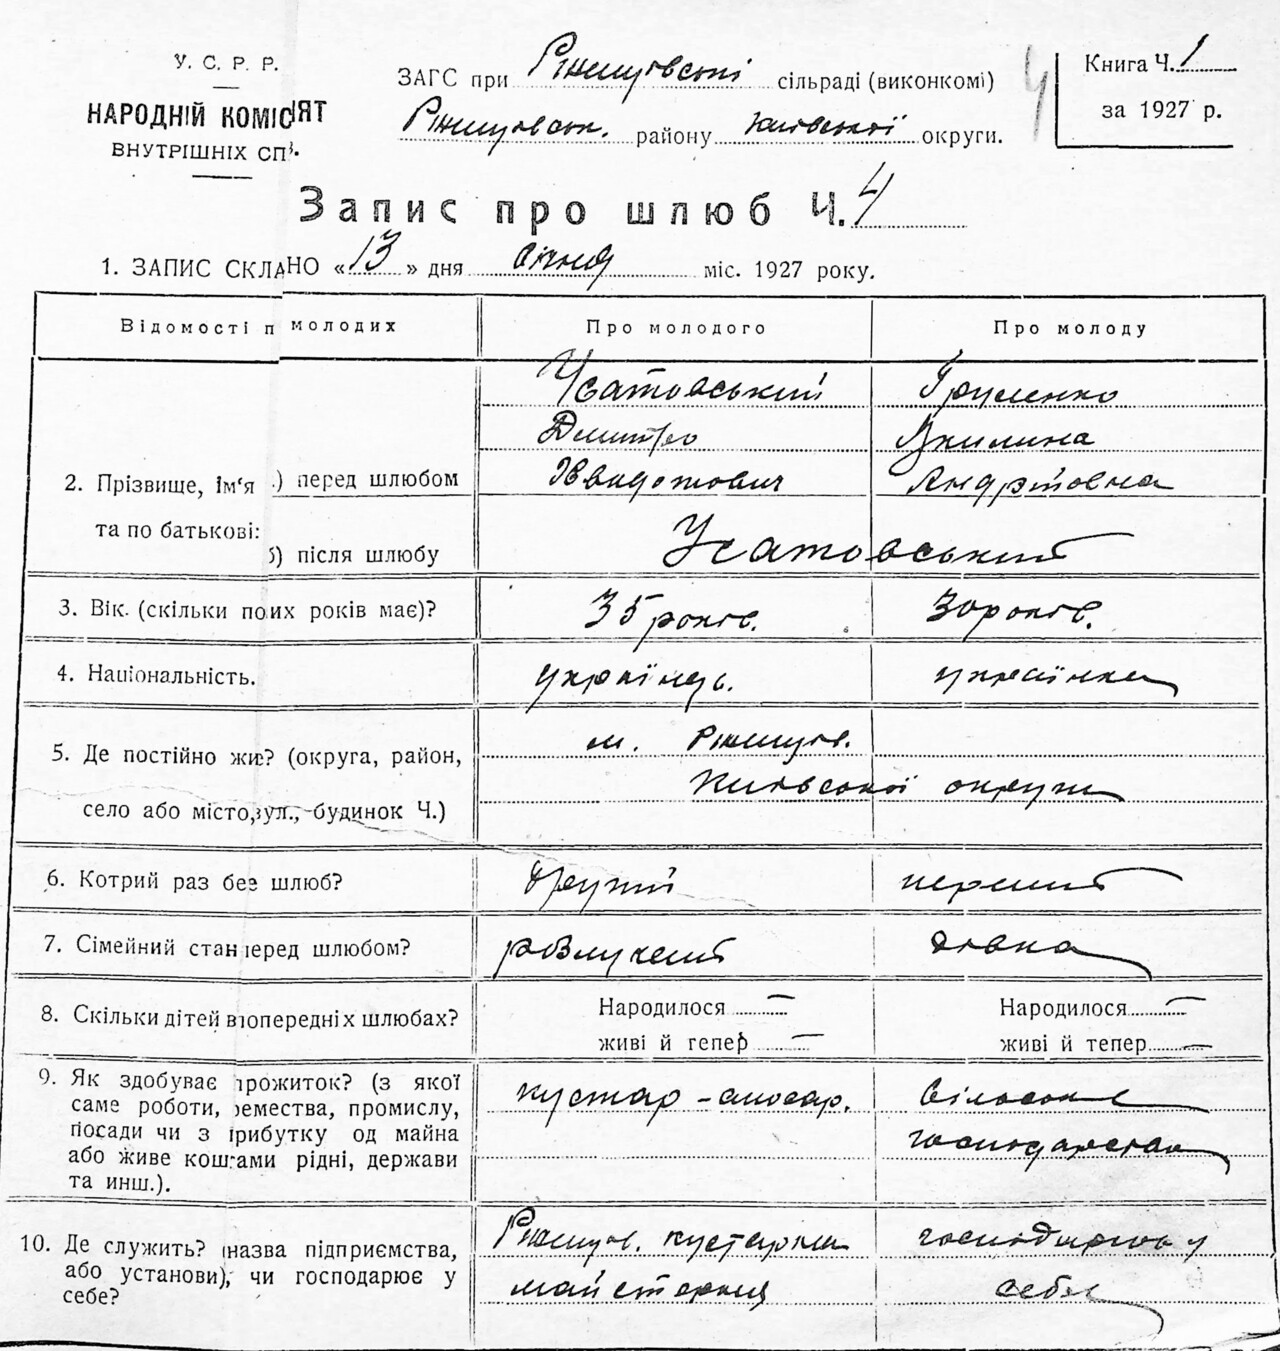 У. С. Р. Р.
НАРОДНІЙ КОМІСІЯТ
ВНУТРІШНІХ СП.
ЗАГС при Ржищівській сільраді (виконкомі)
Ржищівськ. району Київської округи.
4
Книга Ч. 1
за 1927 р.
Запис про шлюб Ч. 4
1. ЗАПИС СКЛАНО «13» дня січня міс. 1927 року.
Відомості п молодих Про молодого Про молоду
Усатовський
Дмитро
Грименко
Килина
Андріївна
2. Прізвище, ім'я .) перед шлюбом
та по батькові:
б) після шлюбу Усатовський
3. Вік. (скільки по их років має)? 35 років. 30 років.
4. Національність. українець. українка
5. Де постійно жи? (округа, район,
село або місто, вул., будинок Ч.)
м. Ржищів.
Київської округи
6. Котрий раз бе з шлюб? другий перший
7. Сімейний стан перед шлюбом? розлучений дівка
8. Скільки дітей в попередніх шлюбах? Народилося — Народилося —
живі й тепер — живі й тепер —
9. Як здобуває прожиток? (з якої
саме роботи, ремества, промислу,
посади чи з прибутку од майна
або живе коштами рідні, держави
та инш.).
кустар - слюсар.
сільське
господарство
10. Де служить? (назва підприємства,
або установи), чи господарює у
себе?
Ржищів. кустарна
майстерня
господарює у
себе